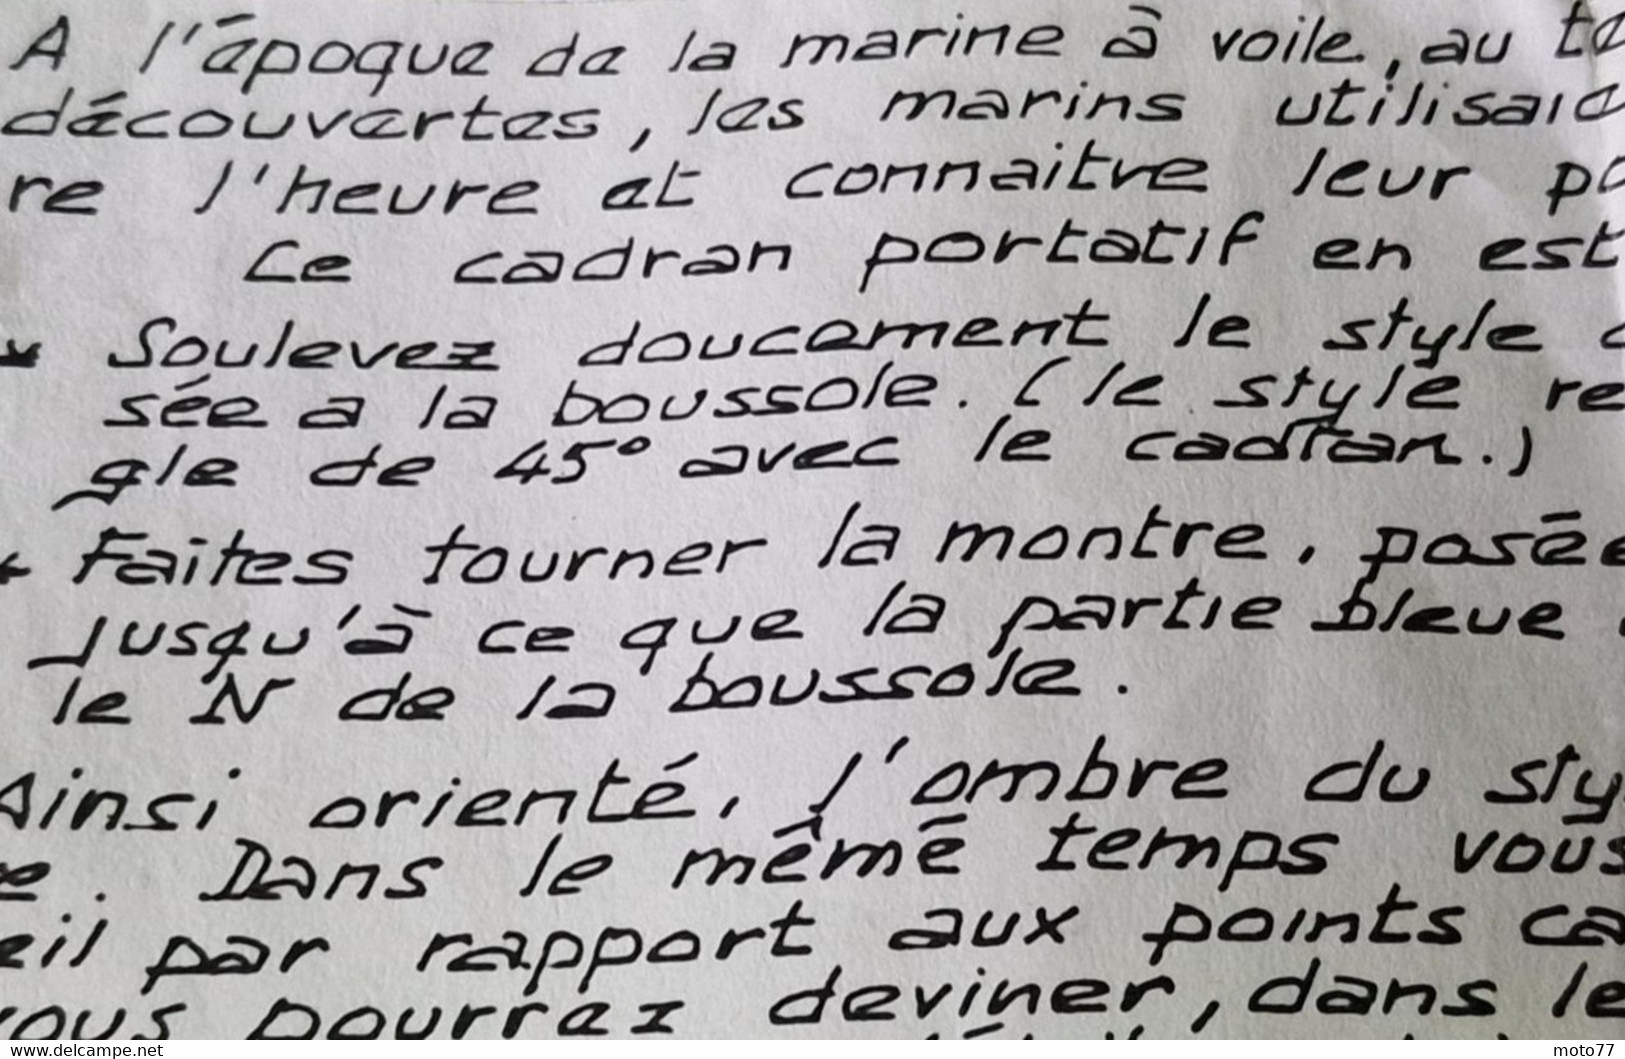 A l'époque de la marine à voile, au te
découvertes, les marins utilisaie
re l'heure et connaitre leur po
Ce cadran portatif en est
* Soulevez doucement le style
sée a la boussole. (le style re
gle de 45° avec le cadran.)
* Faites tourner la montre, posée
jusqu'à ce que la partie bleue
le N de la boussole.
Ainsi orienté, l'ombre du sty
re. Dans le même temps vous
eil par rapport aux points ca
vous pourrez deviner, dans le
www.delcampe.net
moto77